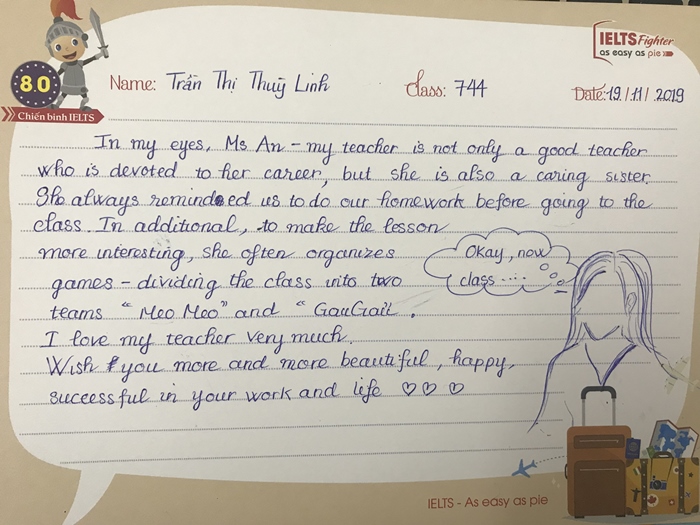 8.0
Chiến binh IELTS
IELTS Fighter
as easy as pie
Name: Trần Thị Thuỳ Linh Class: 744 Date: 19/11/2019
In my eyes, Ms An – my teacher is not only a good teacher
who is devoted to her career, but she is also a caring sister.
She always reminded us to do our homework before going to the
class. In additional, to make the lesson
more interesting, she often organizes
games – dividing the class into two
teams "Meo Meo" and "GauGau".
I love my teacher very much.
Wish you more and more beautiful, happy,
successful in your work and life ♡ ♡ ♡
Okay, now
class ....
IELTS - As easy as pie